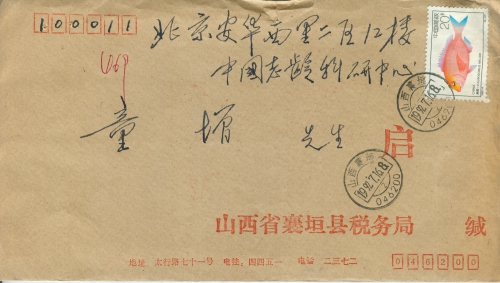 100011
北京安华西里二区仁楼
中国老龄科研中心
童 增 先生 启
20
山西襄垣
1992.7.16.8
046200
山西襄垣
1992.7.16.8
046200
山西省襄垣县税务局 缄
地址 太行路七十一号 电挂，四四五一 电话 二三七二
046200